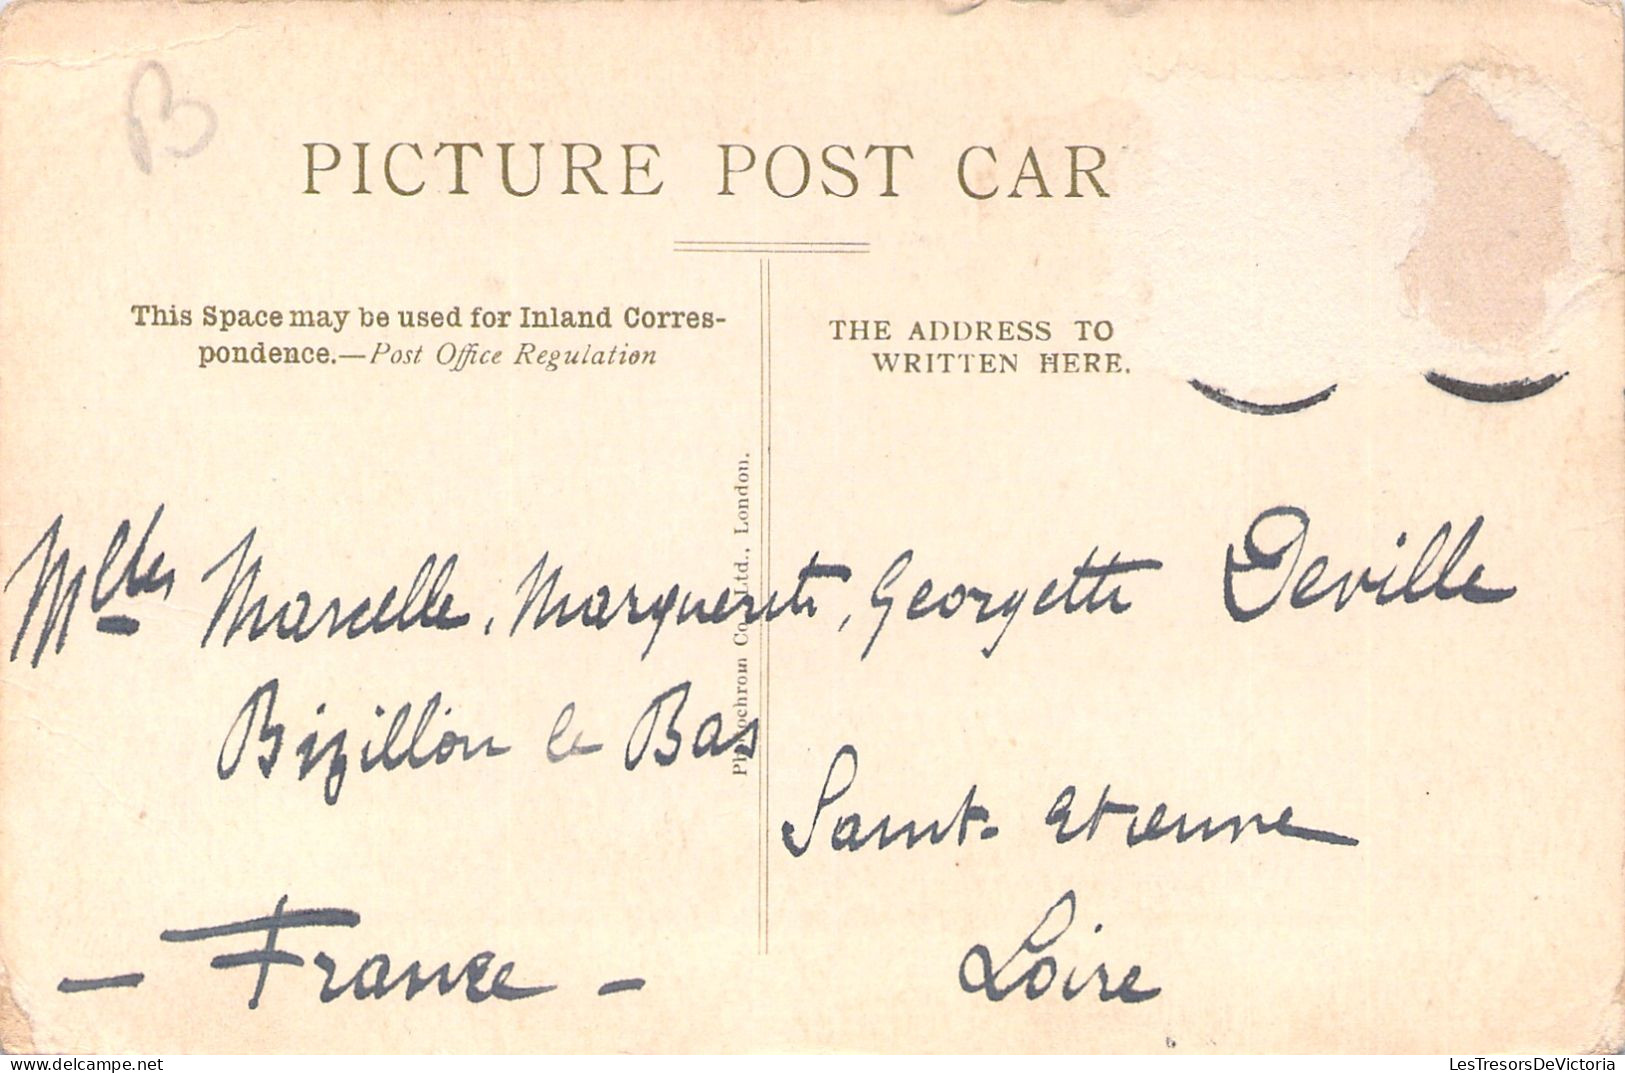 B
PICTURE POST CAR
This Space may be used for Inland Corres-
pondence.—Post Office Regulation
THE ADDRESS TO
WRITTEN HERE.
Photochrom Co., Ltd., London.
Mlles Marcelle, Marguerite, Georgette Deville
Bizillon le Bas
Saint-Etienne
Loire
- France -
LesTresorsDeVictoria